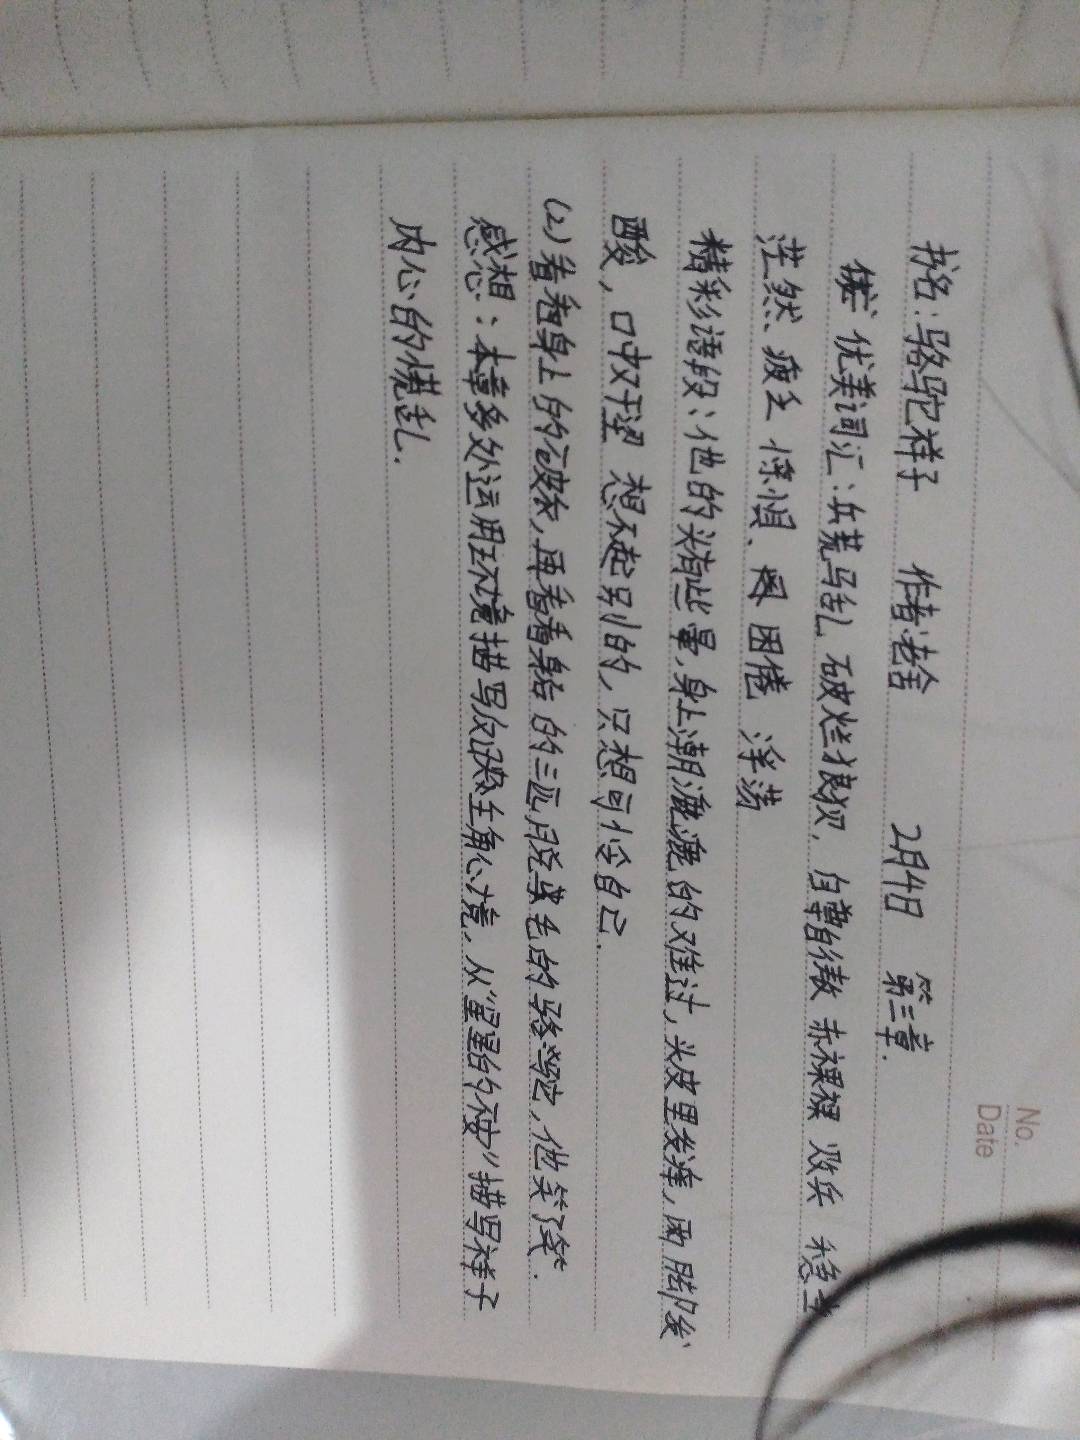 No.
Date
书名:骆驼祥子 作者:老舍 2月4日 第三章.
优美词汇:兵荒马乱 破烂狼狈. 自尊自傲 赤裸裸 败兵 稳立
茫然 疲乏 惊惧、 困倦 浮荡
精彩语段:他的头有些晕,身上潮漉漉的难过,头皮里发痒,两脚发
酸,口中干涩 想不起别的,只想可怜自己.
(2)看看身上的破衣,再看看身后的三匹脱毛的骆驼,他笑了笑.
感想:本章多处运用环境描写 主角心境,从“星星的不安”描写祥子
内心的慌乱.